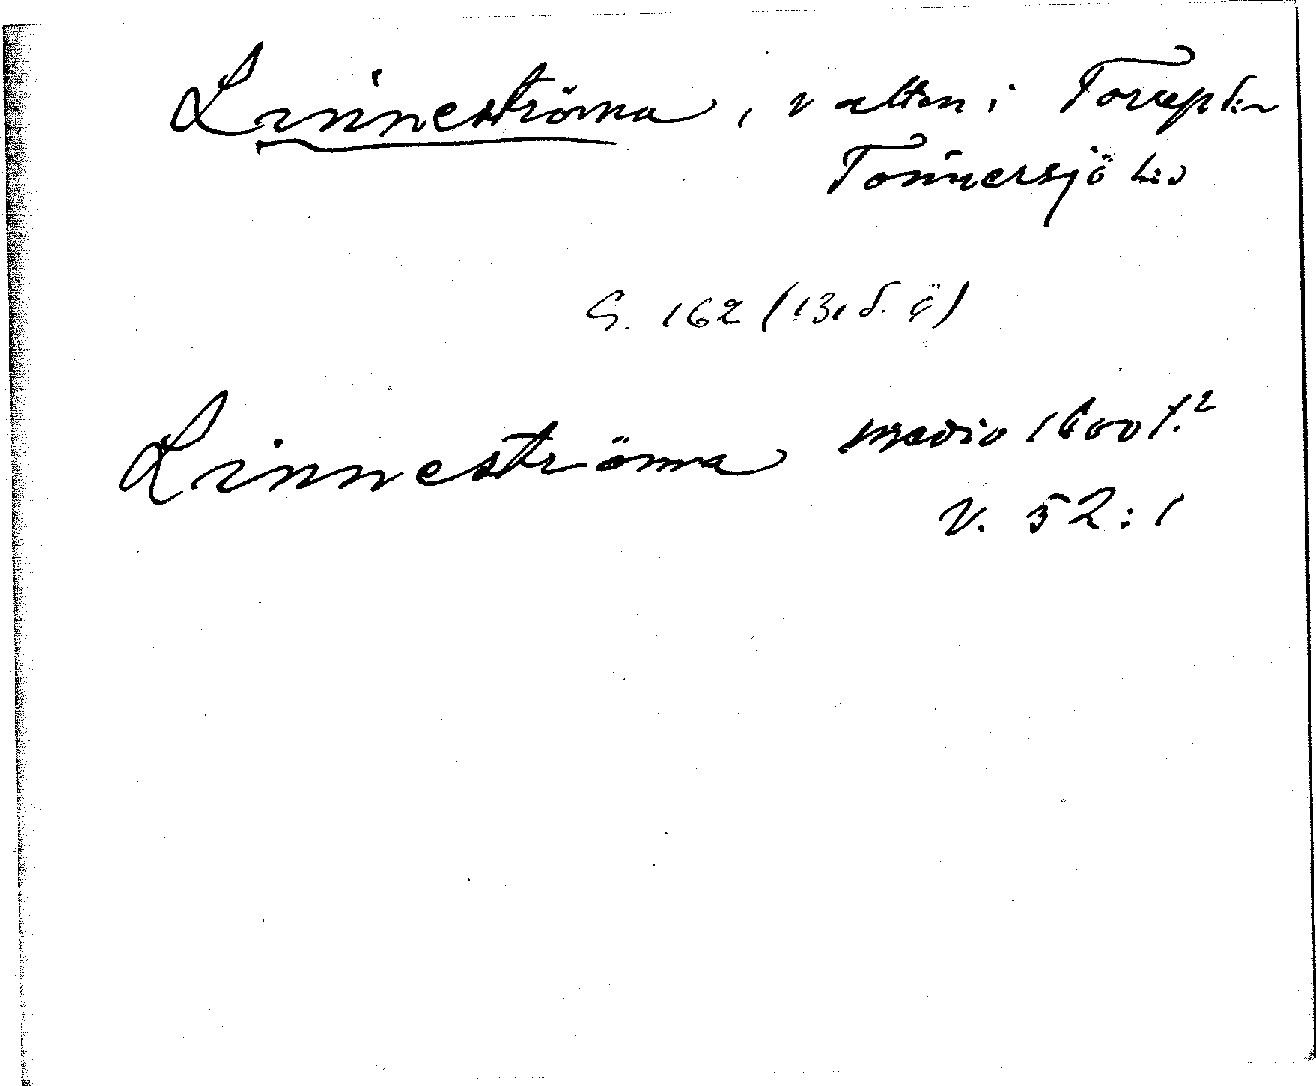 Linneströma, vatten i Torup sn
Tönnersjö hd
G. 162 (131 d. ö)
Linneströmma medio 1600 t.²
V. 52:1